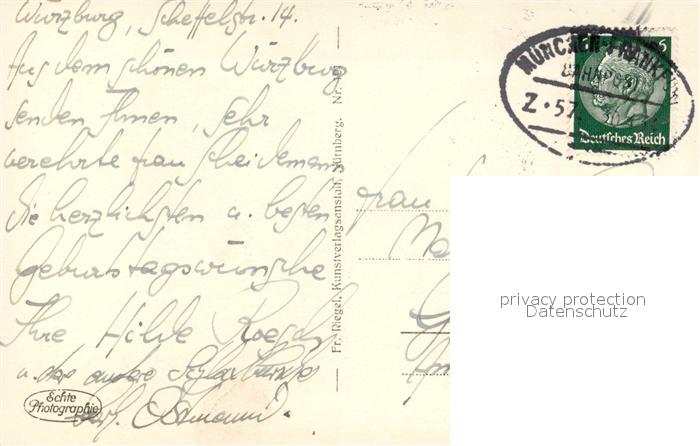 Würzburg, Scheffelstr. 14.
Aus dem schönen Würzburg
senden Ihnen, sehr
verehrte Frau Scheidemann
die herzlichsten u. besten
Geburtstagswünsche
Ihre Hilde
u. der andere
Echte
Photographie
Fr. Riegel, Kunstverlagsanstalt, Nürnberg. Nr.
MÜNCHEN-FRANKF
BAHNPOST
Z. 57
6
Deutsches Reich
Frau
privacy protection
Datenschutz